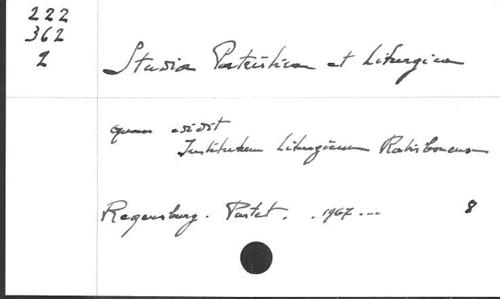 222
362
2
Studia Patristica et Liturgica
quae edidit
Institutum Liturgicum Ratisbonense
Regensburg. Pustet. . 1967 ... 8